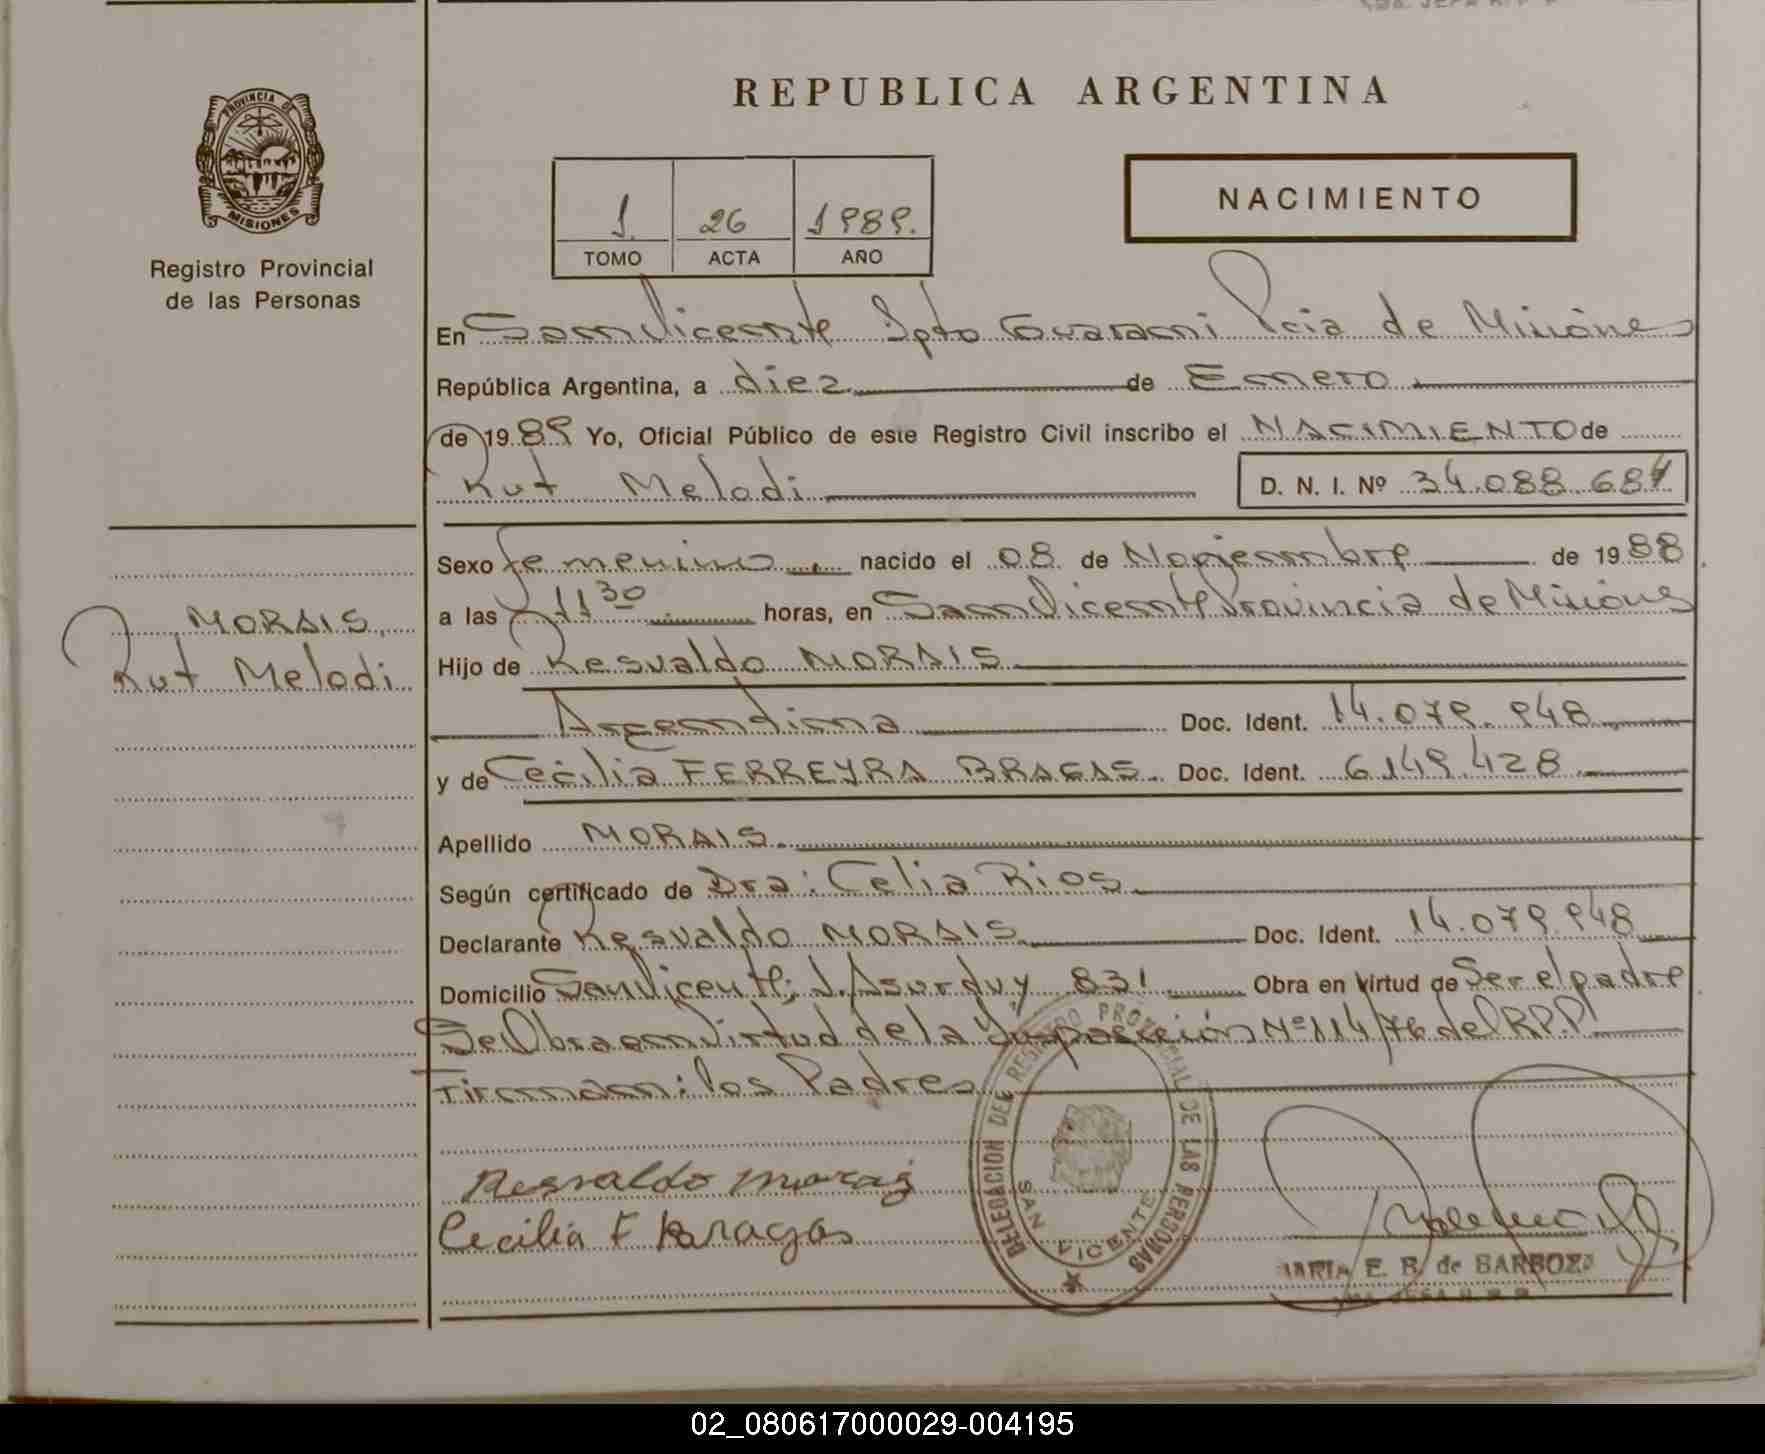 REPUBLICA ARGENTINA
PROVINCIA DE
MISIONES
Registro Provincial
de las Personas
1. 26 1989.
TOMO ACTA AÑO
NACIMIENTO
En San Vicente Dpto Guarani Pcia de Misiones
República Argentina, a diez de Enero
de 1989 Yo, Oficial Público de este Registro Civil inscribo el NACIMIENTO de
Rut Melodi D. N. I. Nº 34.088.684
Sexo femenino nacido el 08 de Noviembre de 1988
a las 11 30 horas, en San Vicente Provincia de Misiones
MORAIS,
Rut Melodi
Hijo de Resvaldo MORAIS
Argentina Doc. Ident. 14.079.948
y de Cecilia FERREYRA BRAGAS Doc. Ident. 6.149.428
Apellido MORAIS
Según certificado de Dra: Celia Rios
Declarante Resvaldo MORAIS Doc. Ident. 14.079.948
Domicilio San Vicente; J. Asurduy 831 Obra en virtud de Ser el padre
Se Obra en Virtud de la Disposición Nº 114/76 del R.P.P
Firman: los Padres
Resvaldo morais
Cecilia F Bragas
DELEGACION DEL REGISTRO PROVINCIAL DE LAS PERSONAS
SAN VICENTE
MARIA E. B. de BARBOZA
02_080617000029-004195